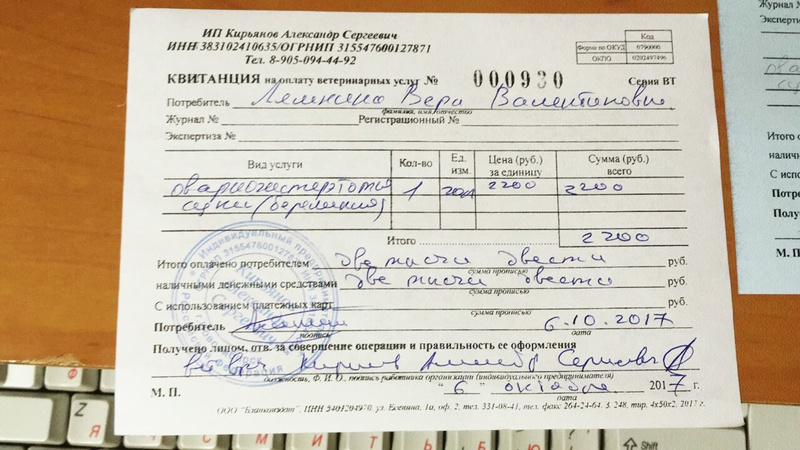 ИП Кирьянов Александр Сергеевич
ИНН 383102410635/ОГРНИП 315547600127871
Тел. 8-905-094-44-92
Код
Форма по ОКУД 0790000
ОКПО 0202497496
КВИТАНЦИЯ на оплату ветеринарных услуг № 000930 Серия ВТ
Потребитель Вера Валентиновна
фамилия, имя, отчество
Журнал № Регистрационный №
Экспертиза №
Вид услуги Кол-во Ед. изм. Цена (руб.) за единицу Сумма (руб.) всего
1 2200 2200
суки (беременная)
Итого 2200
Итого оплачено потребителем две тысячи двести руб.
сумма прописью
наличными денежными средствами две тысячи двести руб.
сумма прописью
С использованием платежных карт руб.
сумма прописью
Потребитель 6.10.2017
подпись дата
Получено лицом, отв. за совершение операции и правильность ее оформления
вет врач Александр Сергеевич
должность, Ф. И. О., подпись работника организации (индивидуального предпринимателя)
М. П. "6" октября 2017 г.
дата
ООО "Бланкиздат", ИНН 5401204970, ул. Есенина, 1а, оф. 2, тел. 331-08-41, тел. факс 264-24-64. З. 248, тир. 4х50х2, 2017 г.
Журнал №
Экспертиза
Итого
наличными
С исполь
Потреб
Получе
М. П.
Я
Shift